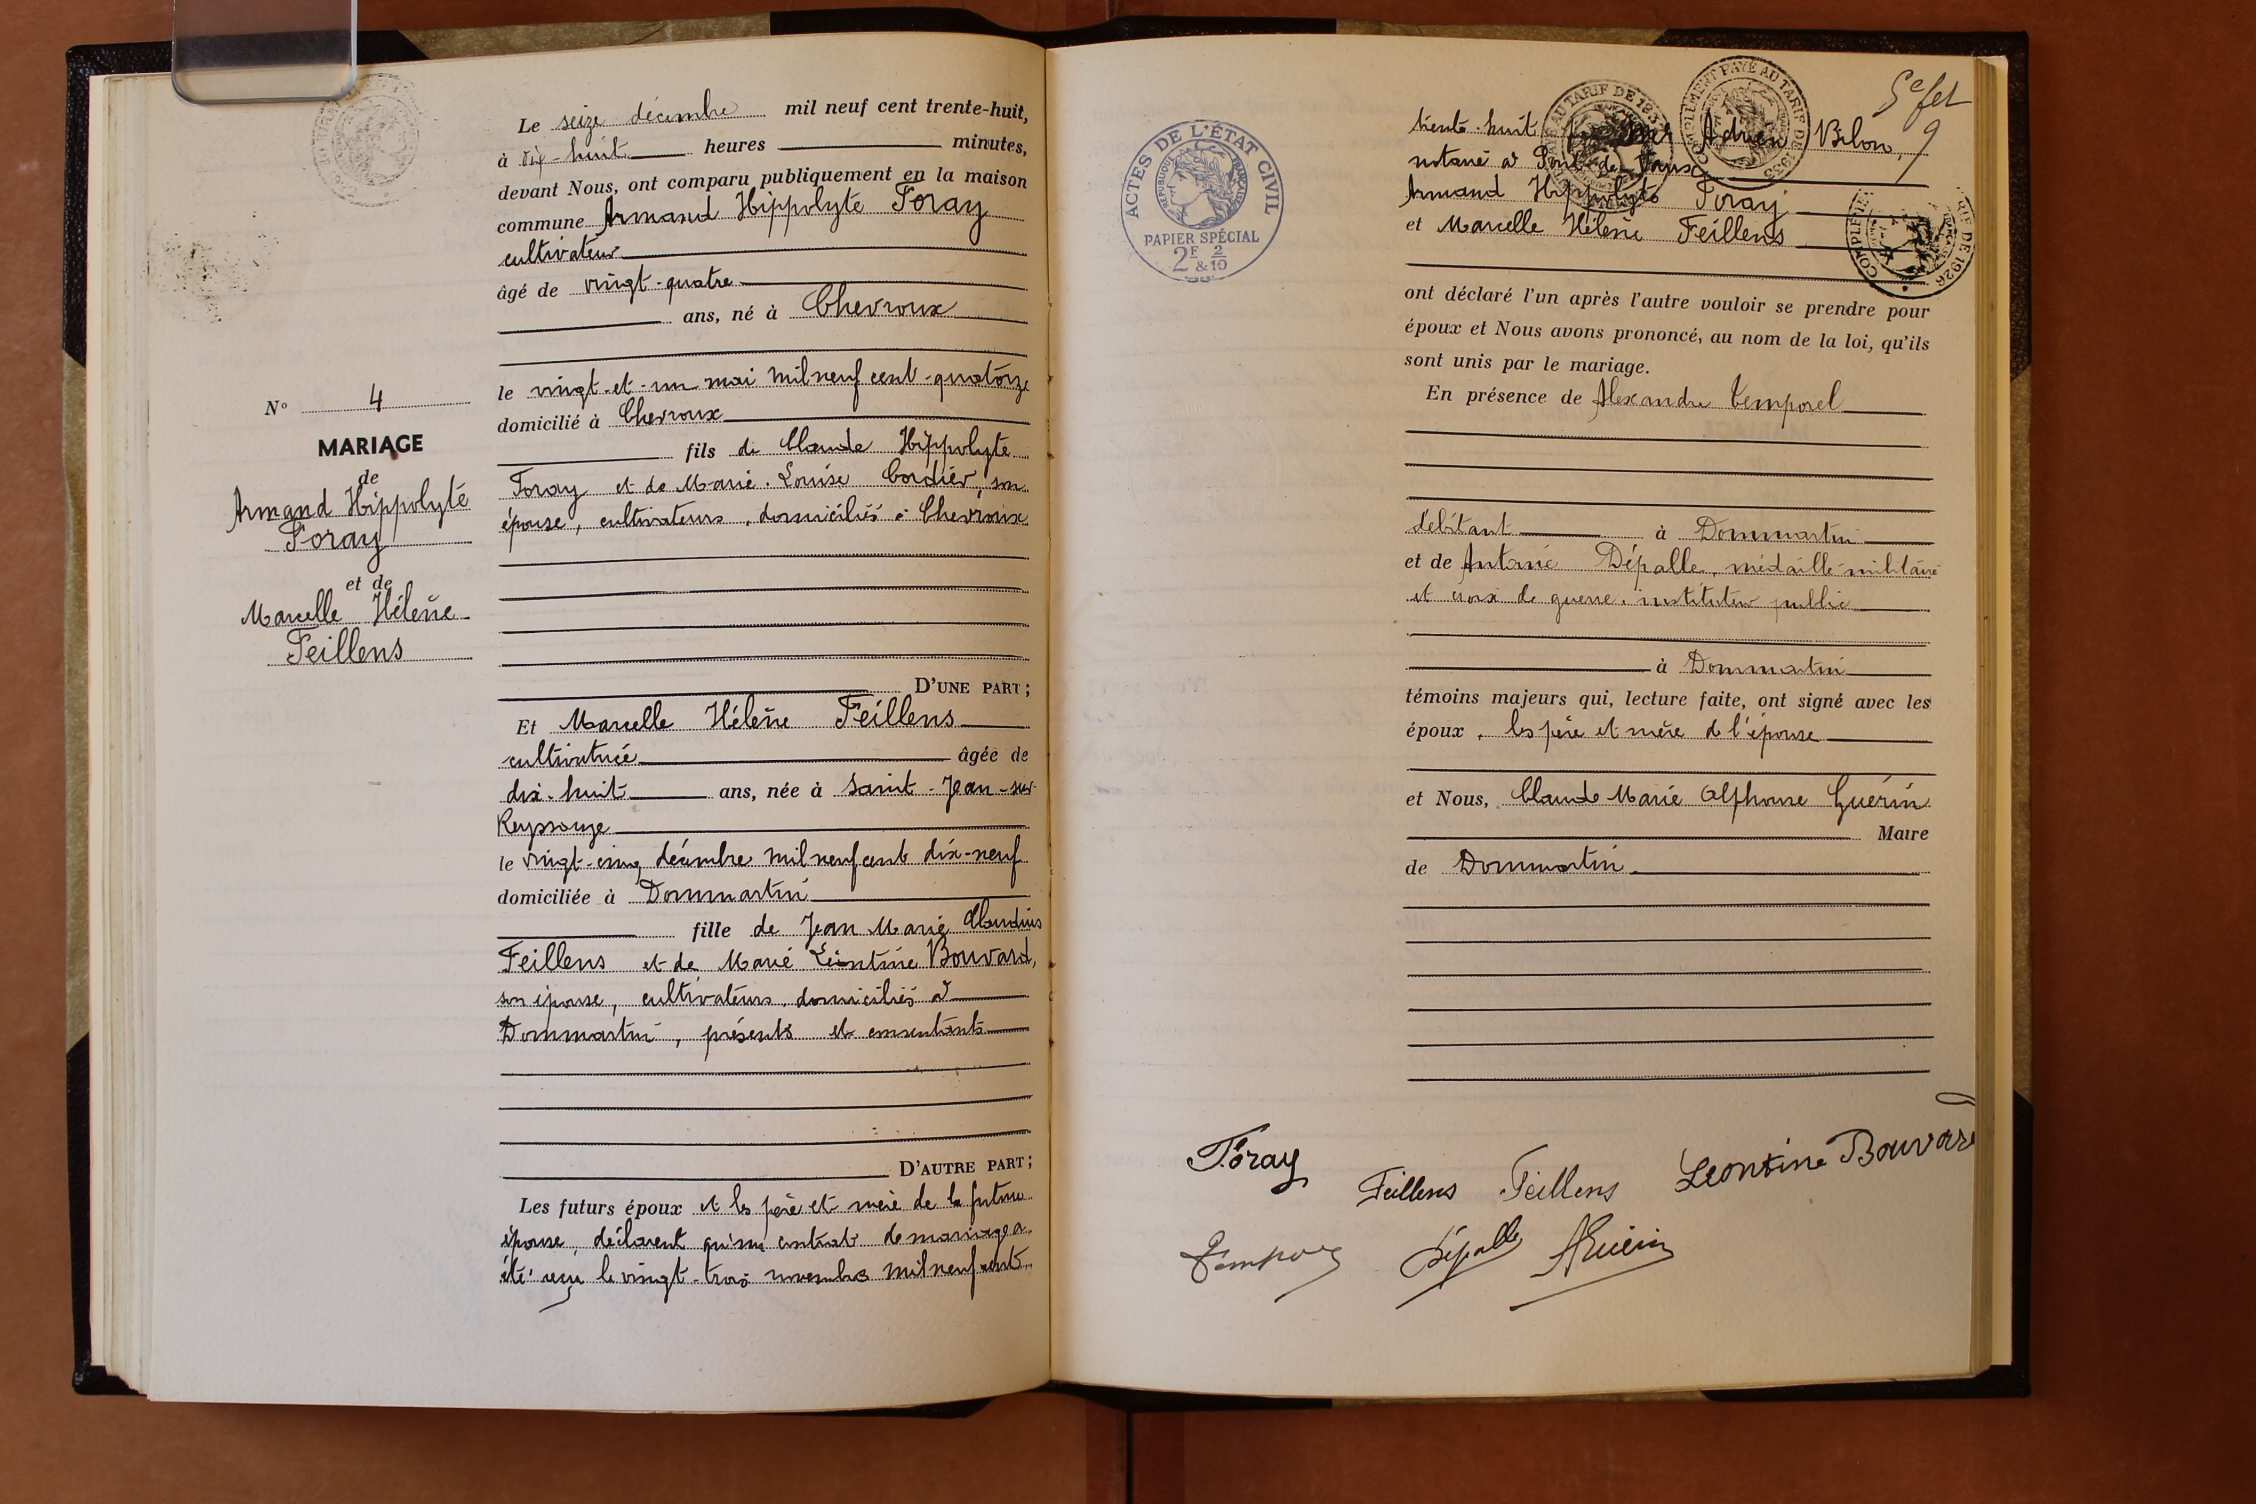 Le seize décembre mil neuf cent trente-huit,
à dix-huit heures minutes,
devant Nous, ont comparu publiquement en la maison
commune Armand Hippolyte Foray
cultivateur
âgé de vingt-quatre
ans, né à Chevroux
le vingt-et-un mai mil neuf cent-quatorze
domicilié à Chevroux
fils de Claude Hippolyte
Foray et de Marie-Louise Cordier, son
épouse, cultivateurs, domiciliés à Chevroux
D'UNE PART;
Et Marcelle Hélène Feillens
cultivatrice âgée de
dix-huit ans, née à Saint-Jean-sur-
Reyssouze
le vingt-cinq décembre mil neuf cent dix-neuf
domiciliée à Dommartin
fille de Jean Marie Claudius
Feillens et de Marie Léontine Bouvard,
son épouse, cultivateurs, domiciliés à
Dommartin, présents et consentants
D'AUTRE PART;
Les futurs époux et les père et mère de la future
épouse, déclarent qu'un contrat de mariage a
été reçu le vingt-trois novembre mil neuf cent
No 4
MARIAGE
de
Armand Hippolyte
Foray
et de
Marcelle Hélène
Feillens
ACTES DE L'ÉTAT CIVIL
RÉPUBLIQUE FRANÇAISE
PAPIER SPÉCIAL
2F 2
& 10
COMPLÉMENT PAYÉ AU TARIF DE 1933
AU TARIF DE 1933
9
trente-huit par Adrien Bilon,
notaire à Pont-de-Vaux
Armand Hippolyte Foray
et Marcelle Hélène Feillens
ont déclaré l'un après l'autre vouloir se prendre pour
époux et Nous avons prononcé, au nom de la loi, qu'ils
sont unis par le mariage.
En présence de Alexandre Temporel
débitant à Dommartin
et de Antonie Dépalle, médaille militaire
et croix de guerre, instituteur public
à Dommartin
témoins majeurs qui, lecture faite, ont signé avec les
époux, les père et mère de l'épouse
et Nous, Claude Marie Alphonse Guérin
Maire
de Dommartin
Foray
Feillens Feillens Leontine Bouvard
Dépalle AGuérin